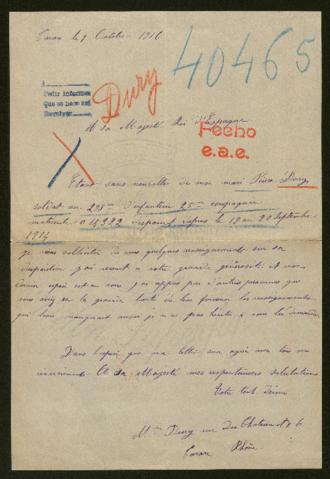 Tarare le 1 Octobre 1916
40465
A
Pedir informes
Que se hace asi
Dury
A sa Majesté Roi d'Espagne
Fecho
e.a.e.
Etant sans nouvelles de mon mari Pierre Dury
soldat au 298me d'infanterie 25me compagnie
matricule 014922 disparu depuis le 19 au 20 Septembre
1914
je vous quelques renseignements sur sa
disparition j'ai recours à votre grande générosité
d'autres personnes que
vous avez eu la grande bonté de leur fournir les renseignements
qui leur manquait aussi je n'ai pas hésité à vous les demander
Dans l'espoir que ma lettre
A sa Majesté mes respectueuses salutations
Votre tout dévoué
Mme Dury rue du Chateau No 6
Tarare Rhône